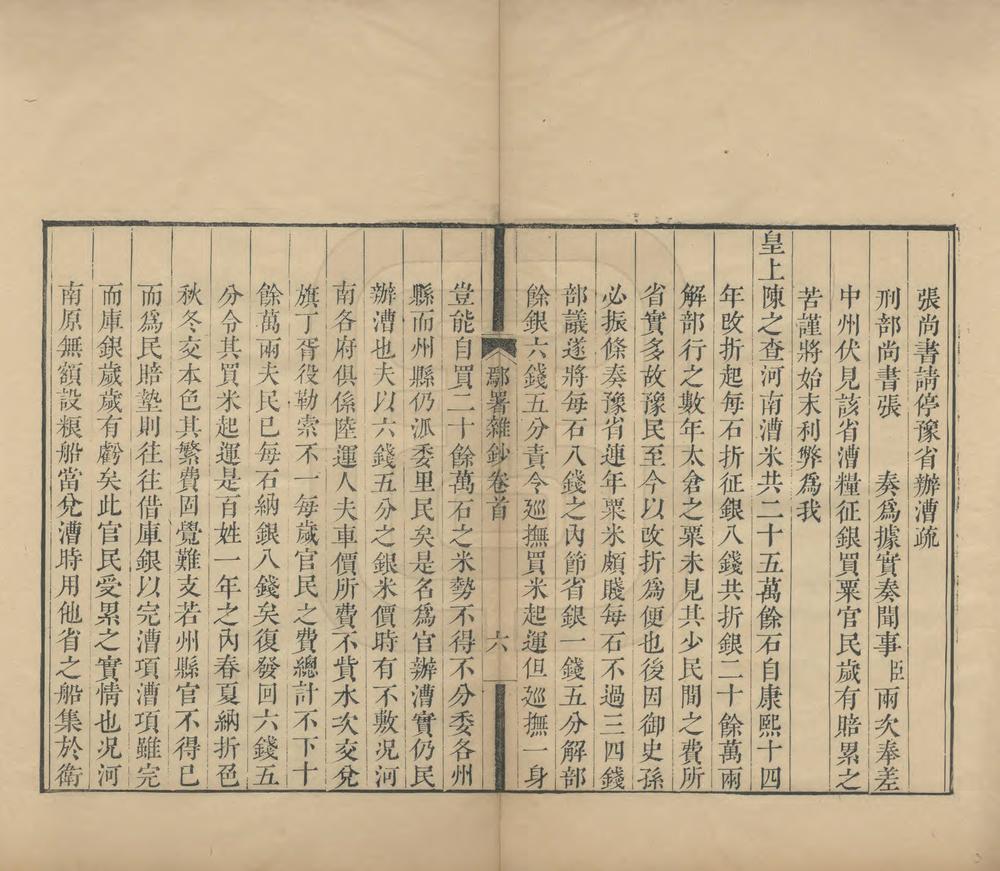 張尚書請停豫省辦漕疏
刑部尚書張　奏爲據實奏聞事臣兩次奉差
中州伏見該省漕糧征銀買粟官民歲有賠累之
苦謹將始末利弊爲我
皇上陳之查河南漕米共二十五萬餘石自康熙十四
年改折起每石折征銀八錢共折銀二十餘萬兩
解部行之數年太倉之粟未見其少民間之費所
省實多故豫民至今以改折爲便也後因御史孫
必振條奏豫省連年粟米頗賤每石不過三四錢
部議遂將每石八錢之內節省銀一錢五分解部
餘銀六錢五分責令廵撫買米起運但廵撫一身
鄢署雜鈔卷首　六
豈能自買二十餘萬石之米勢不得不分委各州
縣而州縣仍派委里民矣是名爲官辦漕實仍民
辦漕也夫以六錢五分之銀米價時有不敷況河
南各府俱係陸運人夫車價所費不貲水次交兌
旗丁胥役勒索不一每歲官民之費總計不下十
餘萬兩夫民已每石納銀八錢矣復發回六錢五
分令其買米起運是百姓一年之內春夏納折色
秋冬交本色其繁費固覺難支若州縣官不得已
而爲民賠墊則往往借庫銀以完漕項漕項雖完
而庫銀歲歲有虧矣此官民受累之實情也況河
南原無額設糧船當兌漕時用他省之船集於衛